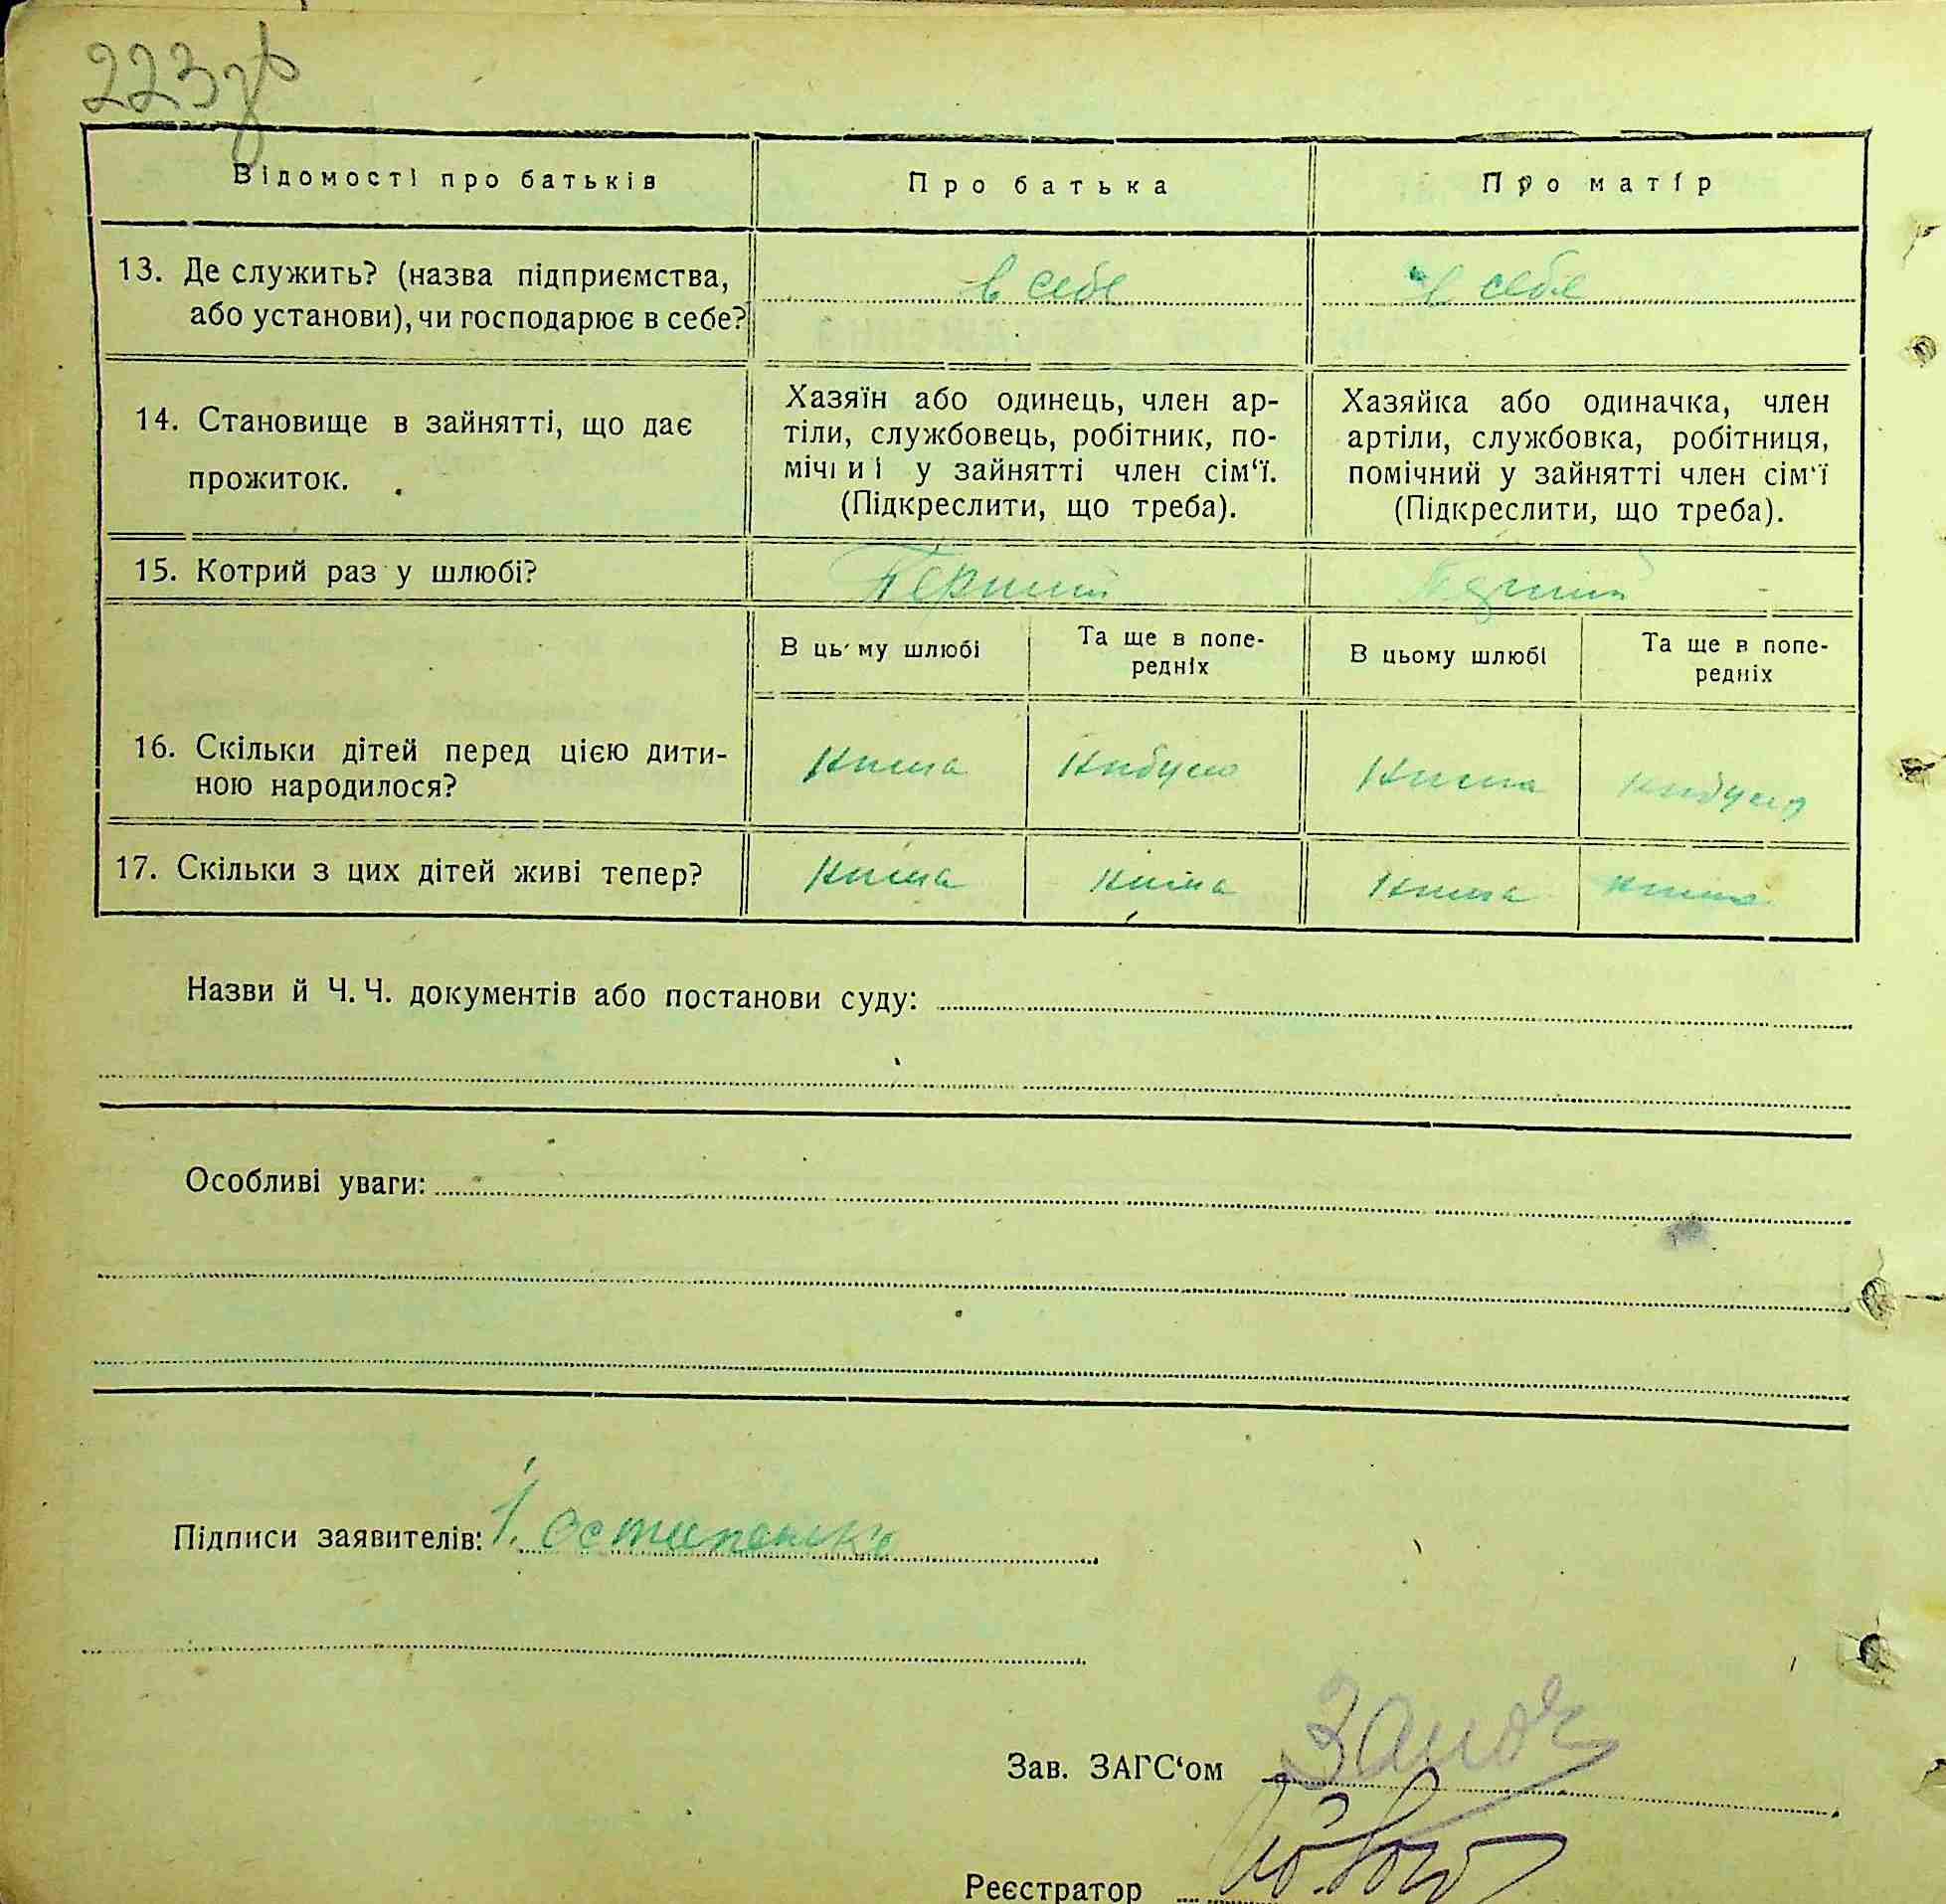 223зв
Відомості про батьків
Про батька
Про матір
13. Де служить? (назва підприємства,
або установи), чи господарює в себе?
в себе
в себе
14. Становище в зайнятті, що дає
прожиток.
Хазяїн або одинець, член ар-
тіли, службовець, робітник, по-
мічниі у зайнятті член сім‘ї.
(Підкреслити, що треба).
Хазяйка або одиначка, член
артіли, службовка, робітниця,
помічний у зайнятті член сім‘ї
(Підкреслити, що треба).
15. Котрий раз у шлюбі?
Перший
Перший
В цьому шлюбі
Та ще в попе-
редніх
В цьому шлюбі
Та ще в попе-
редніх
16. Скільки дітей перед цією дити-
ною народилося?
Нима
Нибуло
Нима
нибуло
17. Скільки з цих дітей живі тепер?
Нима
нима
Нима
нима
Назви й Ч. Ч. документів або постанови суду:
Особливі уваги:
Підписи заявителів: І. Остапенко
Зав. ЗАГС‘ом
Реєстратор